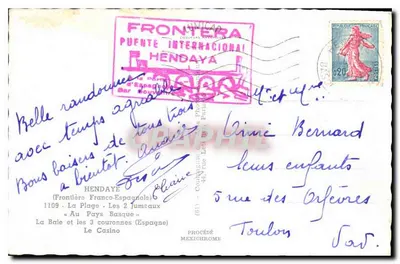 FRONTERA
PUENTE INTERNACIONAL
HENDAYA
Belle randonnée
avec temps agréable
Bons baisers de tous trois
a bientôt.
HENDAYE
(Frontière Franco-Espagnole)
1109 - La Plage - Les 2 Jumeaux
« Au Pays Basque »
La Baie et les 3 couronnes (Espagne)
Le Casino
PROCÉDÉ
MEXICHROME
0,20
Mr et Mme
Aimé Bernard
leurs enfants
5 rue des Orfèvres
Toulon
Var.